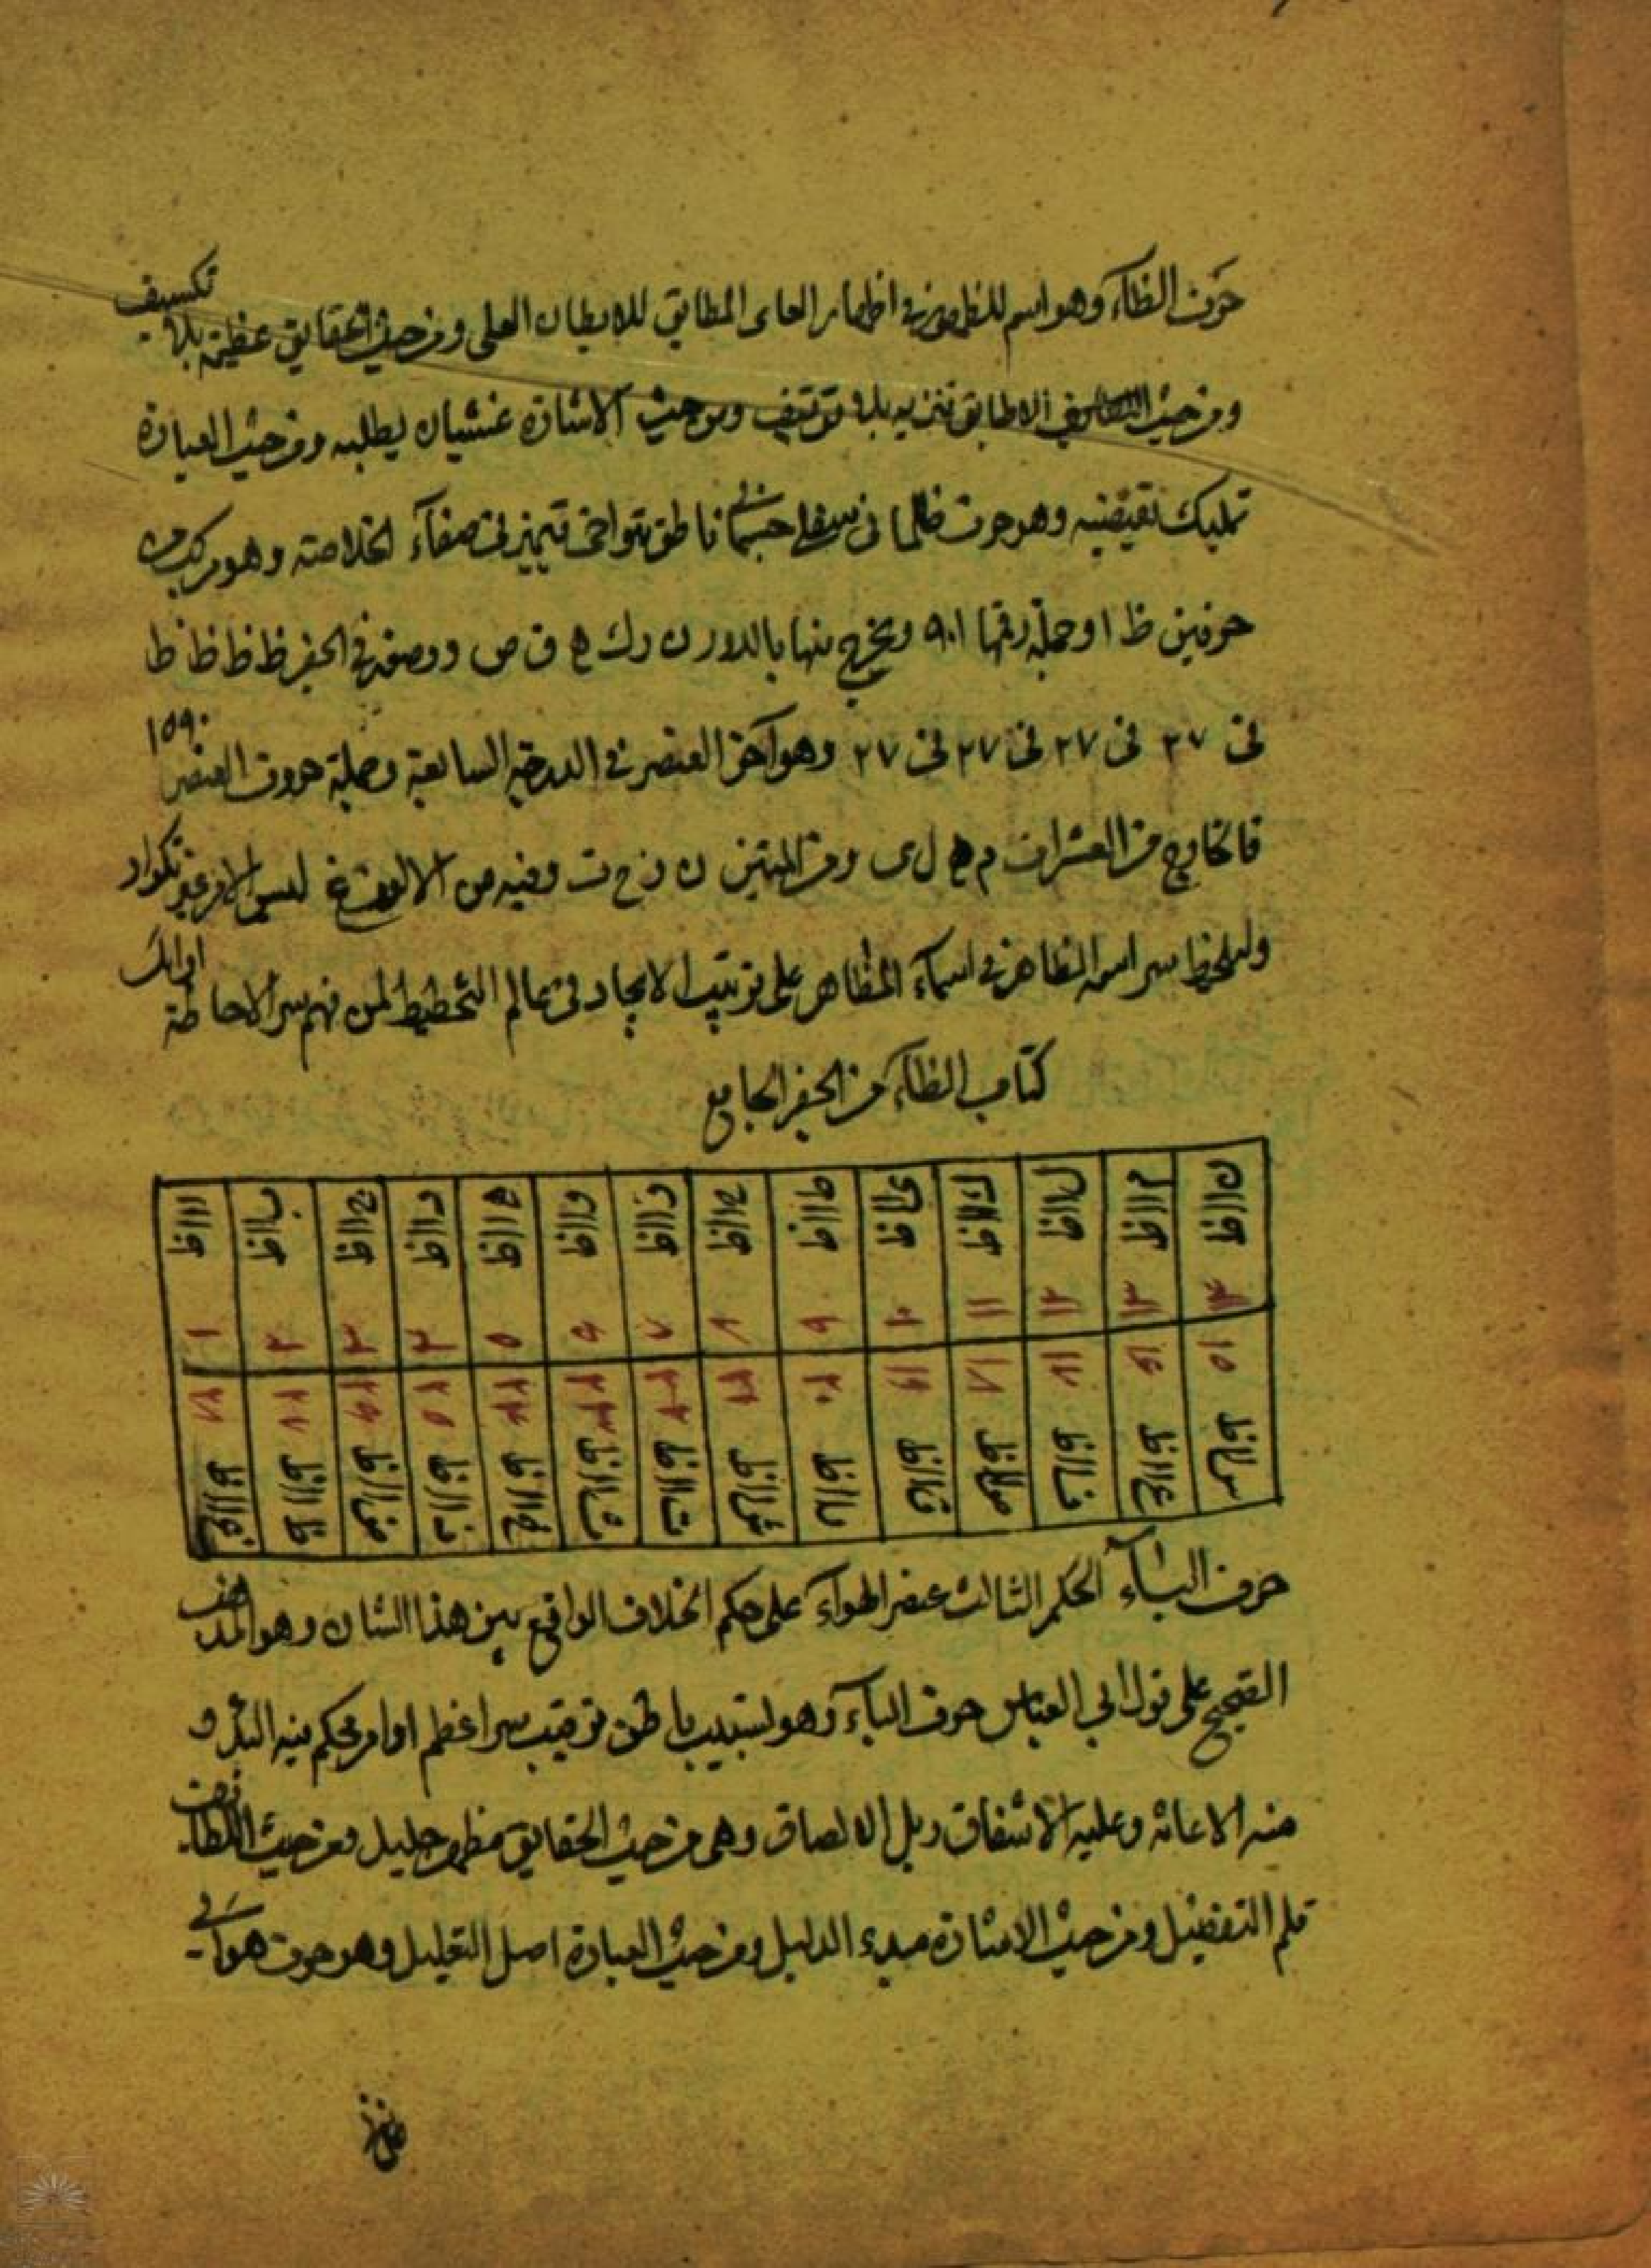 حرف الظآء وهو اسم للظهور في اظهار العلى المطابق للابطان العلى ومن حيث الحقايق عظمة بلا تكسيف
ومن حيث اللطايف الاطباق تنزيه بلا توقيف ومن حيث الاشارة غشيان يطلبه ومن حيث العبارة
تمليك وهو حرف ظلمانى سفلى جسمانى ناطق متواخى متميز فى صفآء الخلاصة وهو مركب من
حرفين ظ ا وجملة رقمها ٩٠١ ويخرج منها بالدور ن ر ك ه ق ص ووصفه في الجفر ظ ظ ظ ظ
فى ٢٧ فى ٢٧ فى ٢٧ فى ٢٧ وهو آخر العنصر في الدرجة السابعة وجملة حروف العنصر ١٥٩٠
فالخارج من العشرات م ه ل ى ومن المئين ن ز خ ت وفيه من الالوف غ ليس الا من غير تكرار
وليلحظ سر اسمه الظاهر في اسمآء المظاهر على ترتيب الايجاد فى عالم التخطيط لمن فهم سر الاحاطة
كتاب الظآء من الجفر الجامع
ظ ا ا ن ظ ا ا م ظ ا ا ل ظ ا ا ك ظ ا ا ى ظ ا ا ط ظ ا ا ح ظ ا ا ز ظ ا ا و ظ ا ا ه ظ ا ا د ظ ا ا ج ظ ا ا ب ظ ا ا ا
١٤ ١٣ ١٢ ١١ ١٠ ٩ ٨ ٧ ٦ ٥ ٤ ٣ ٢ ١
١٥ ١٦ ١٧ ١٨ ١٩ ٢٠ ٢١ ٢٢ ٢٣ ٢٤ ٢٥ ٢٦ ٢٧ ٢٨
حرف البآء الحكم الثالث عنصر الهوآء على حكم الخلاف الواقع بين هذا الشان وهو المذهب
الصحيح على قول ابي العباس حرف البآء وهو لسبب باطن ترتيب سر اعظم اوامر محكم فيه البدؤ و
منه الاعانة وعليه الاشفاق وبل الالصاق وهى من حيث الحقايق مظهر جليل ومن حيث اللطايف
قلم التفضيل ومن حيث الاشارة مبدء الدليل ومن حيث العبارة اصل التعليل وهو حرف هوآئى